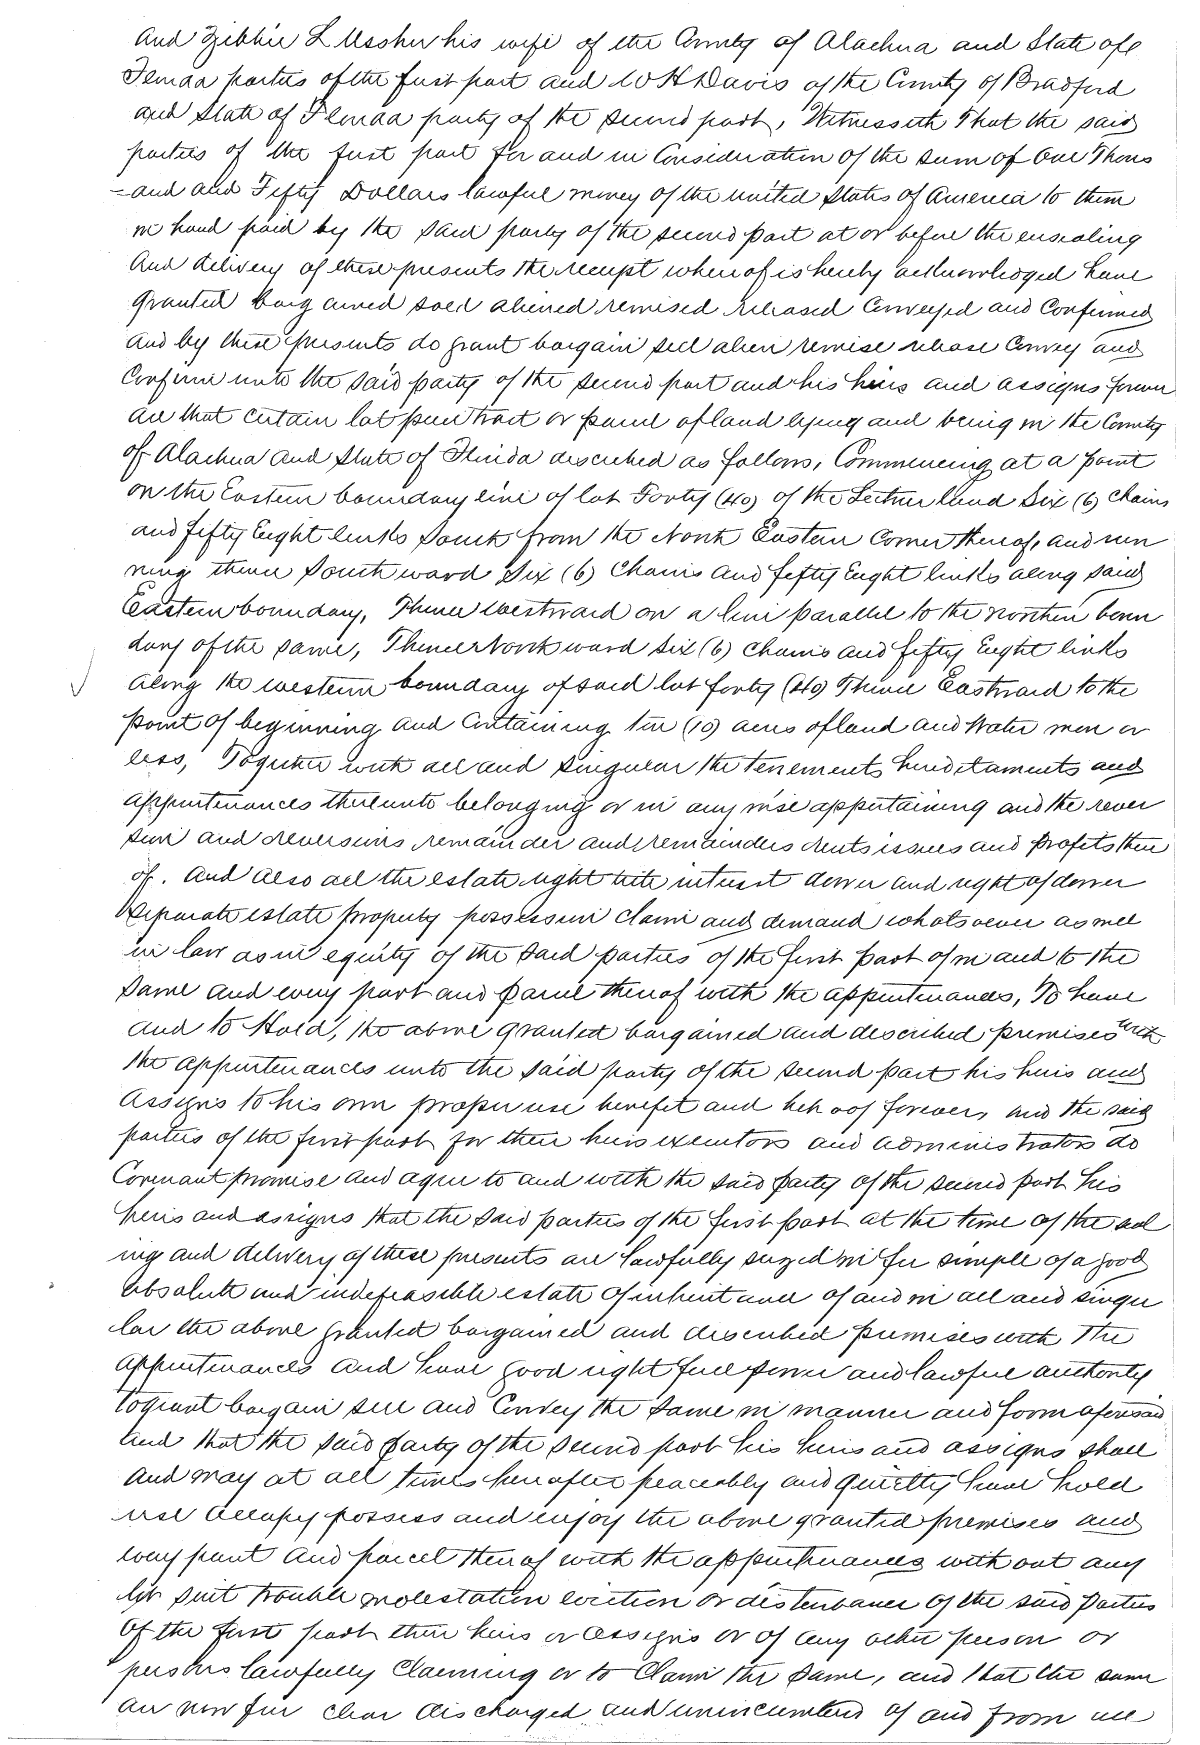 and Zibbie L Ussher his wife of the County of Alachua and State of
Florida parties of the first part and W H Davis of the County of Bradford
and State of Florida party of the second part, Witnesseth That the said
parties of the first part for and in Consideration of the sum of One Thous
=and and Fifty Dollars lawful money of the united States of America to them
in hand paid by the said party of the second part at or before the ensealing
and delivery of these presents the receipt whereof is hereby acknowledged have
granted bargained sold aliened remised released Conveyed and Confirmed
and by these presents do grant bargain sell alien remise release Convey and
Confirm unto the said party of the second part and his heirs and assigns forever
all that certain lot piece tract or parcel of land lying and being in the County
of Alachua and State of Florida described as follows, Commencing at a point
on the Eastern boundary line of lot Forty (40) of the land Six (6) Chains
and fifty Eight links South from the North Eastern Corner thereof, and run
ning thence Southward Six (6) Chains and fifty Eight links along said
Eastern boundary, Thence westward on a line parallel to the northern boun
dary of the same, Thence Northward six (6) chains and fifty Eight links
along the western boundary of said lot forty (40) Thence Eastward to the
point of beginning and Containing ten (10) acres of land and Water more or
less, Together with all and singular the tenements hereditaments and
appurtenances thereunto belonging or in any wise appertaining and the rever
sion and reversions remainder and remainders rents issues and profits there
of. and also all the estate right title interest dower and right of dower
separate estate property possession claim and demand whatsoever as well
in law as in equity of the said parties of the first part of in and to the
same and every part and parcel thereof with the appurtenances, To have
and to Hold, the above granted bargained and described premises with
the appurtenances unto the said party of the second part his heirs and
assigns to his own proper use benefit and behoof forever, and the said
parties of the first part for their heirs executors and administrators do
Covenant promise and agree to and with the said party of the second part his
heirs and assigns that the said parties of the first part at the time of the seal
ing and delivery of these presents are lawfully seized in fee simple of a good
absolute and indefeasible estate of inheritance of and in all and singu
lar the above granted bargained and described premises with the
appurtenances and have good right full power and lawful authority
to grant bargain sell and Convey the same in manner and form aforesaid
and that the said party of the second part his heirs and assigns shall
and may at all times hereafter peaceably and quietly have hold
use occupy possess and enjoy the above granted premises and
every part and parcel thereof with the appurtenances with out any
let suit trouble molestation eviction or disturbance of the said parties
of the first part their heirs or assigns or of any other person or
persons lawfully Claiming or to Claim the same, and that the same
are now free clear discharged and unincumbered of and from all